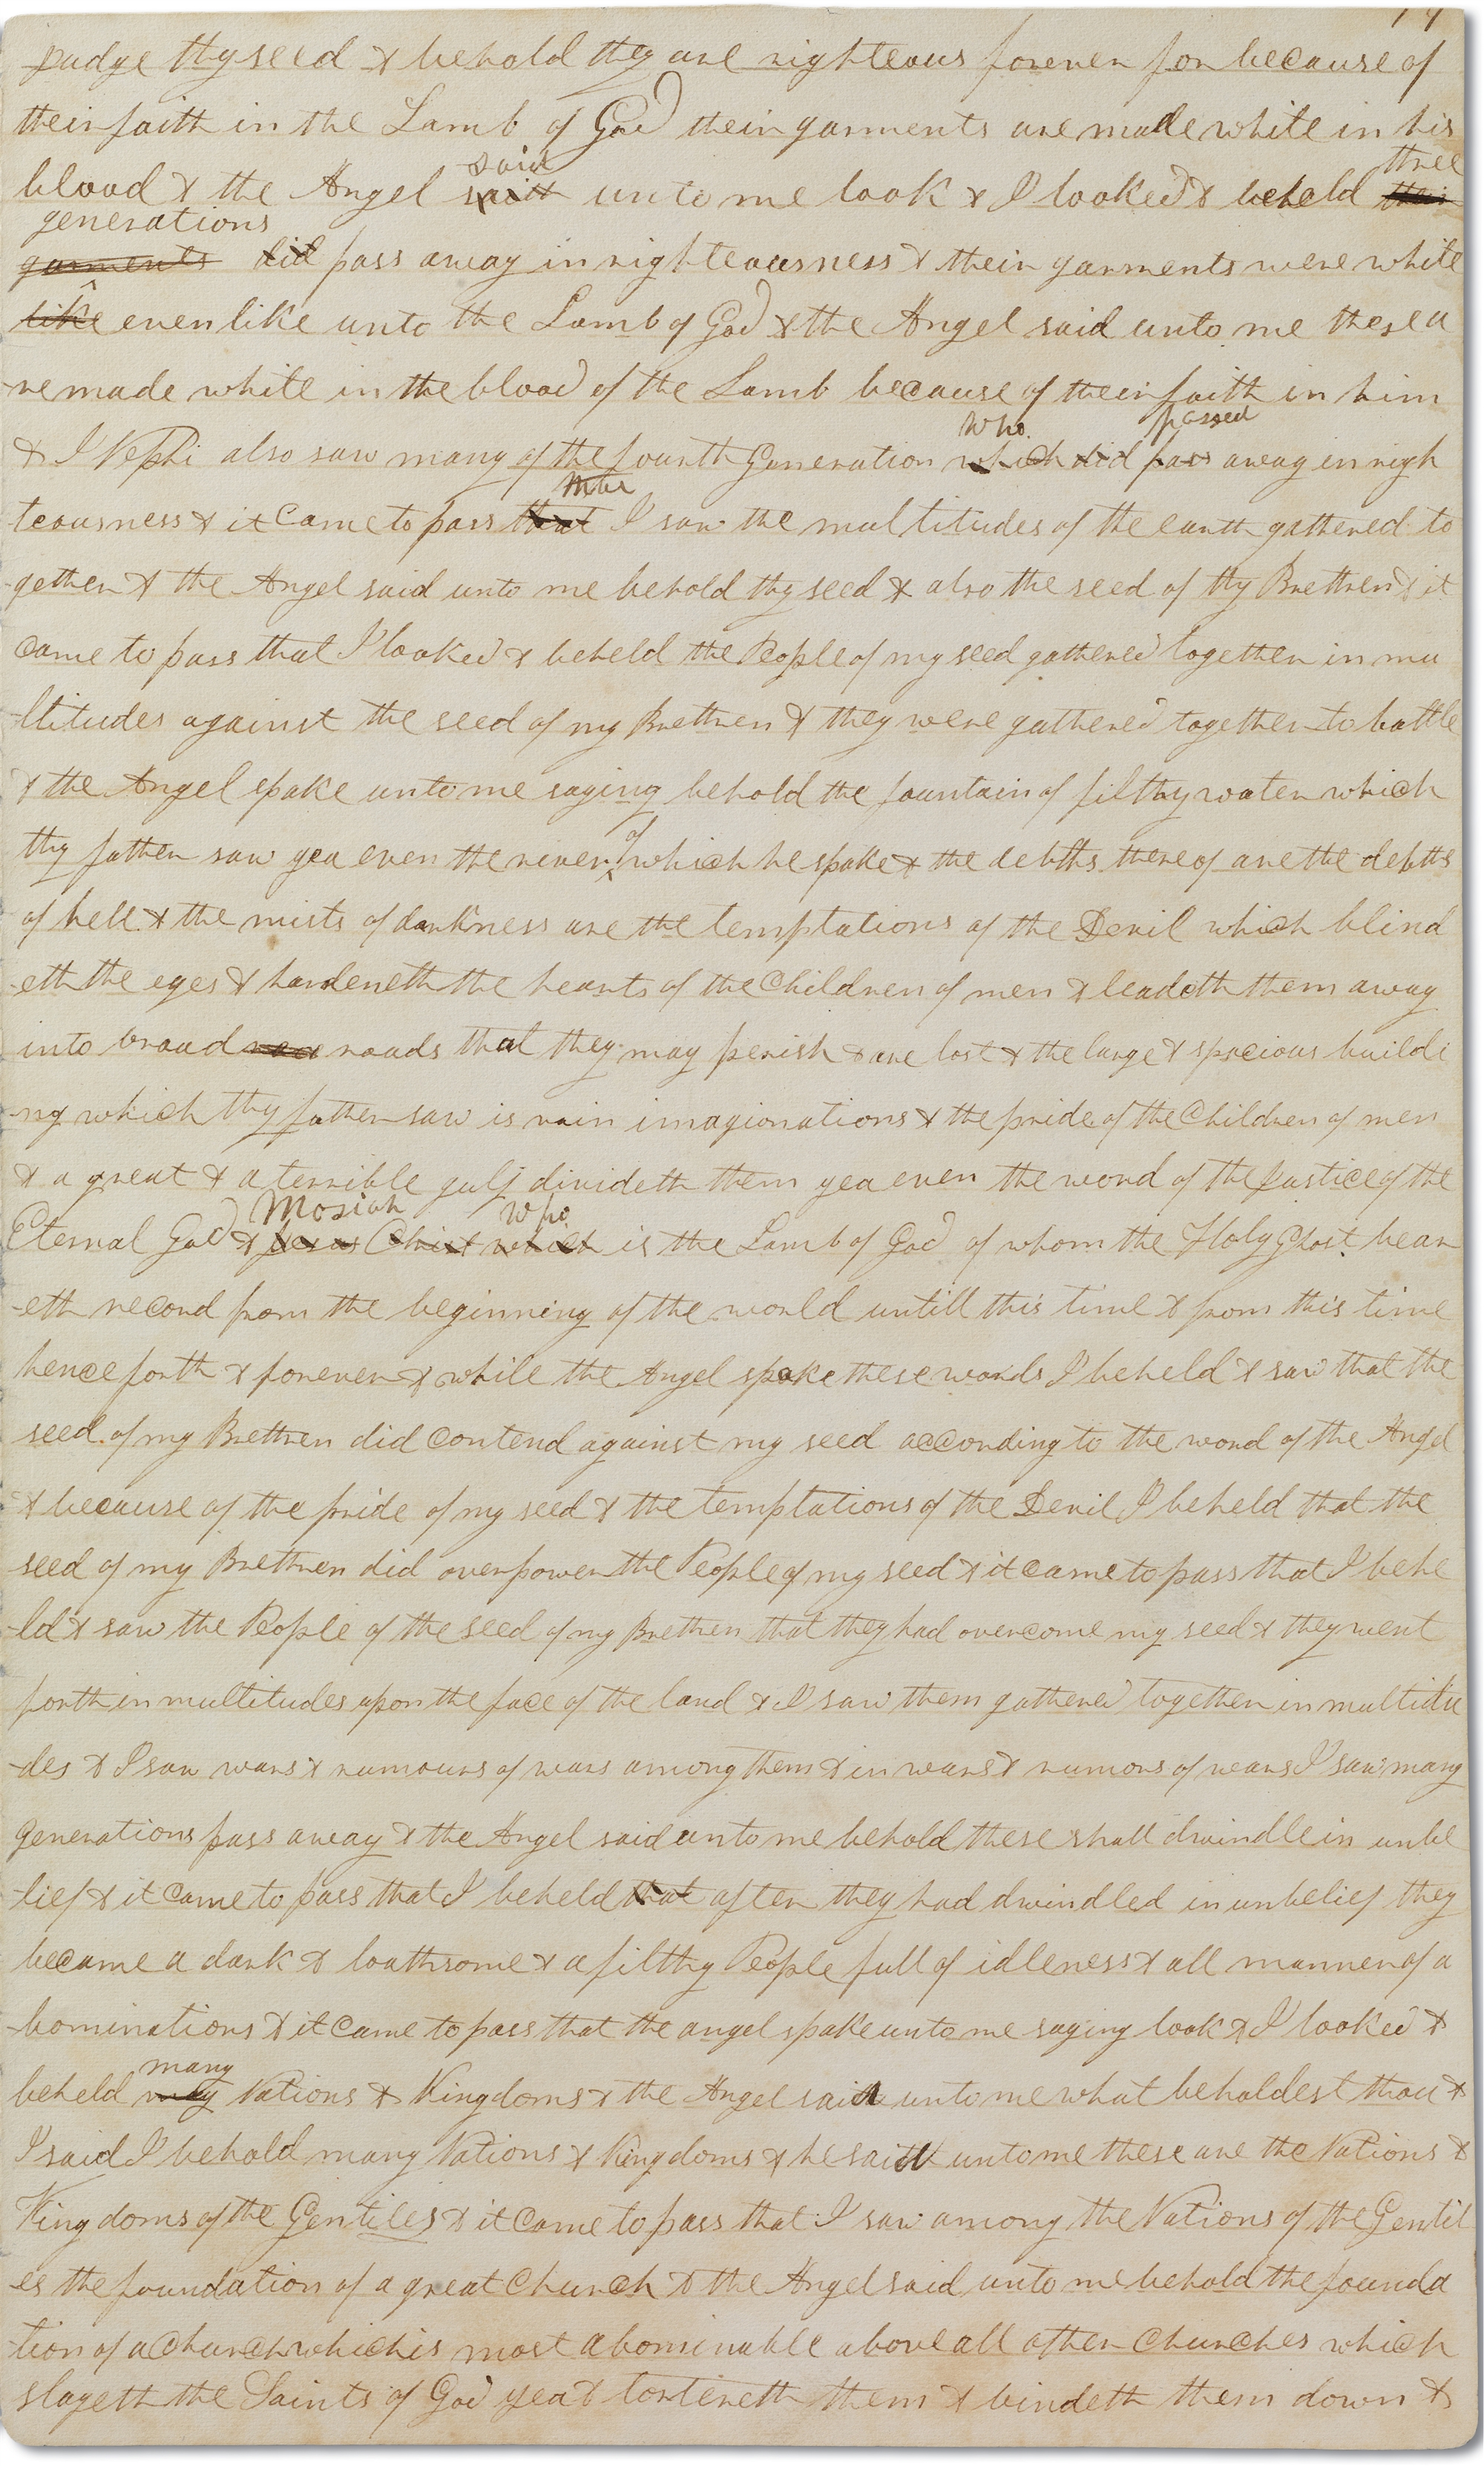 Judge thy seed & behold they are righteous forever for because of
their faith in the Lamb of God their garments are made white in his
said three
blood & the Angel saith unto me look & I looked & beheld their
generations
garments did pass away in righteousness & their garments were white
like even like unto the Lamb of God & the Angel said unto me these a
re made white in the blood of the Lamb because of their faith in him
who passed
& I Nephi also saw many of the fourth Generation which did pass away in righ
teousness & it came to pass that I saw the multitudes of the earth gathered to
gether & the Angel said unto me behold thy seed & also the seed of thy Brethren & it
came to pass that I looked & beheld the People of my seed gathered together in mu
ltitudes against the seed of my Brethren & they were gathered together to battle
& the Angel spake unto me saying behold the fountain of filthy water which
of
thy father saw yea even the river which he spake & the debths thereof are the debths
of hell & the mists of darkness are the temptations of the Devil which blind
eth the eyes & hardeneth the hearts of the Children of men & leadeth them away
into broad roads that they may perish & are lost & the large & spacious buildi
ng which thy father saw is vain imagionations & the pride of the Children of men
& a great & a terrible gulf divideth them yea even the word of the Justice of the
Mosiah who
Eternal God & Jesus Christ which is the Lamb of God of whom the Holy Ghost bear
eth record from the beginning of the world untill this time & from this time
henceforth & forever & while the Angel spake these words I beheld & saw that the
seed of my Brethren did contend against my seed according to the word of the Angel
& because of the pride of my seed & the temptations of the Devil I beheld that the
seed of my Brethren did overpower the People of my seed & it came to pass that I behe
ld & saw the People of the seed of my Brethren that they had overcome my seed & they went
forth in multitudes upon the face of the land & I saw them gathered together in multitu
des & I saw wars & rumours of wars among them & in wars & rumors of wars I saw many
generations pass away & the Angel said unto me behold these shall dwindle in unbe
lief & it came to pass that I beheld that after they had dwindled in unbelief they
became a dark & loathsome & a filthy People full of idleness & all manner of a
bominations & it came to pass that the angel spake unto me saying look & I looked &
many
beheld many Nations & Kingdoms & the Angel said unto me what beholdest thou &
I said I behold many Nations & Kingdoms & he saith unto me these are the Nations &
Kingdoms of the Gentiles & it came to pass that I saw among the Nations of the Gentil
es the foundation of a great church & the Angel said unto me behold the founda
tion of a Church which is most abominable above all other churches which
slayeth the Saints of God yea & tortereth them & bindeth them down &